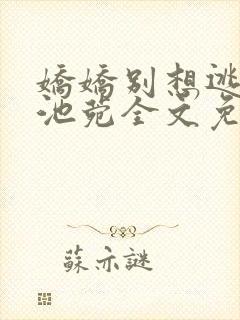 嬌嬌別想逃
池菀全文免
蘇亦謎